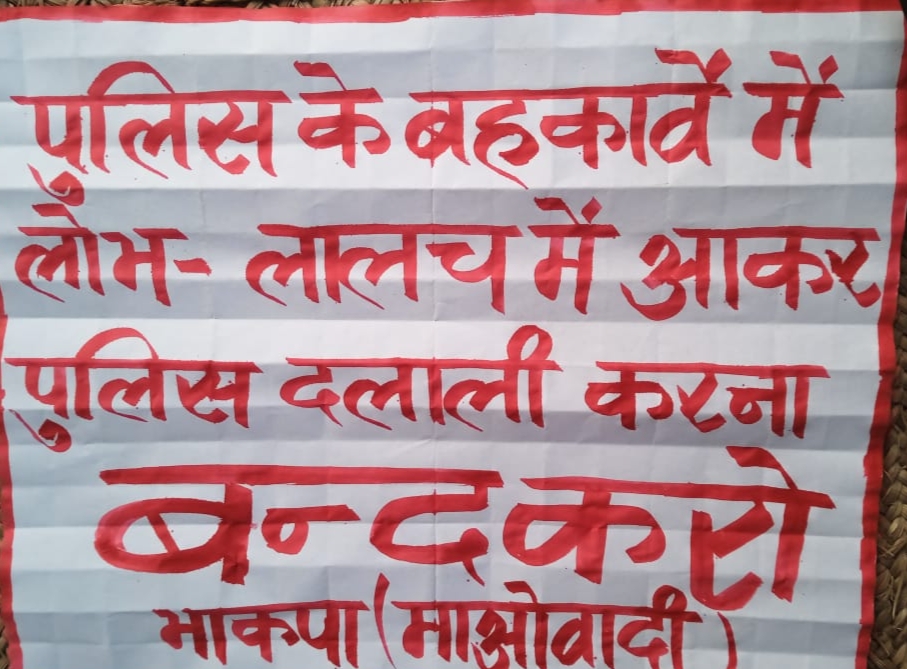 पुलिस के बहकावें में
लोभ- लालच में आकर
पुलिस दलाली करना
बन्द करो
भाकपा (माओवादी)